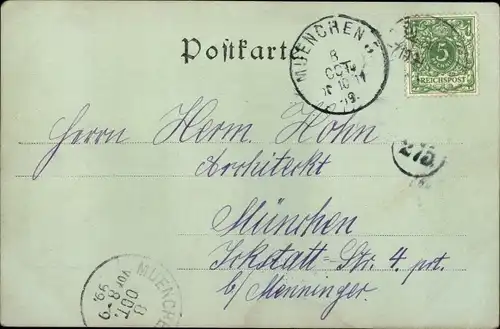 Postkarte
MUENCHEN
8
OCT
99.
5
REICHSPOST
Herrn Herm. Hohn
Architeckt
275.
München
Ickstatt-Str. 4 prt.
b/ Menninger.
MUENCHEN
8
OCT.
8-9
99.